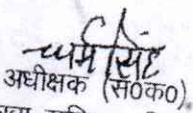 धर्म सिंह
अधीक्षक (स०क०)